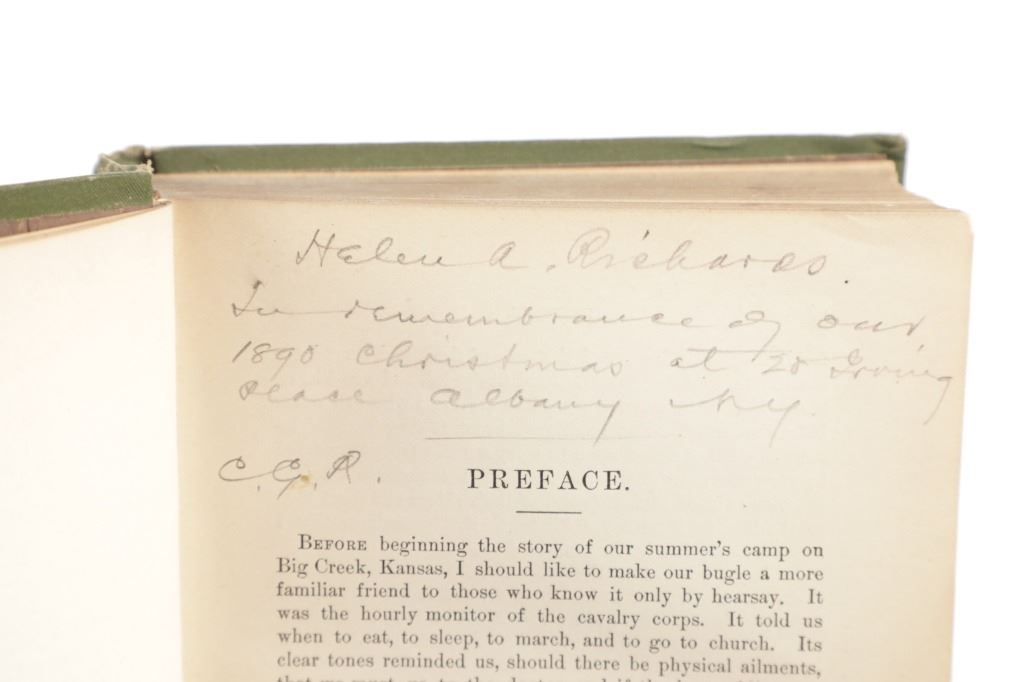 Helen A. Richards.
In remembrance of our
1890 Christmas at 20 Irving
Place Albany NY
C.G.R.
PREFACE.
BEFORE beginning the story of our summer's camp on
Big Creek, Kansas, I should like to make our bugle a more
familiar friend to those who know it only by hearsay. It
was the hourly monitor of the cavalry corps. It told us
when to eat, to sleep, to march, and to go to church. Its
clear tones reminded us, should there be physical ailments,